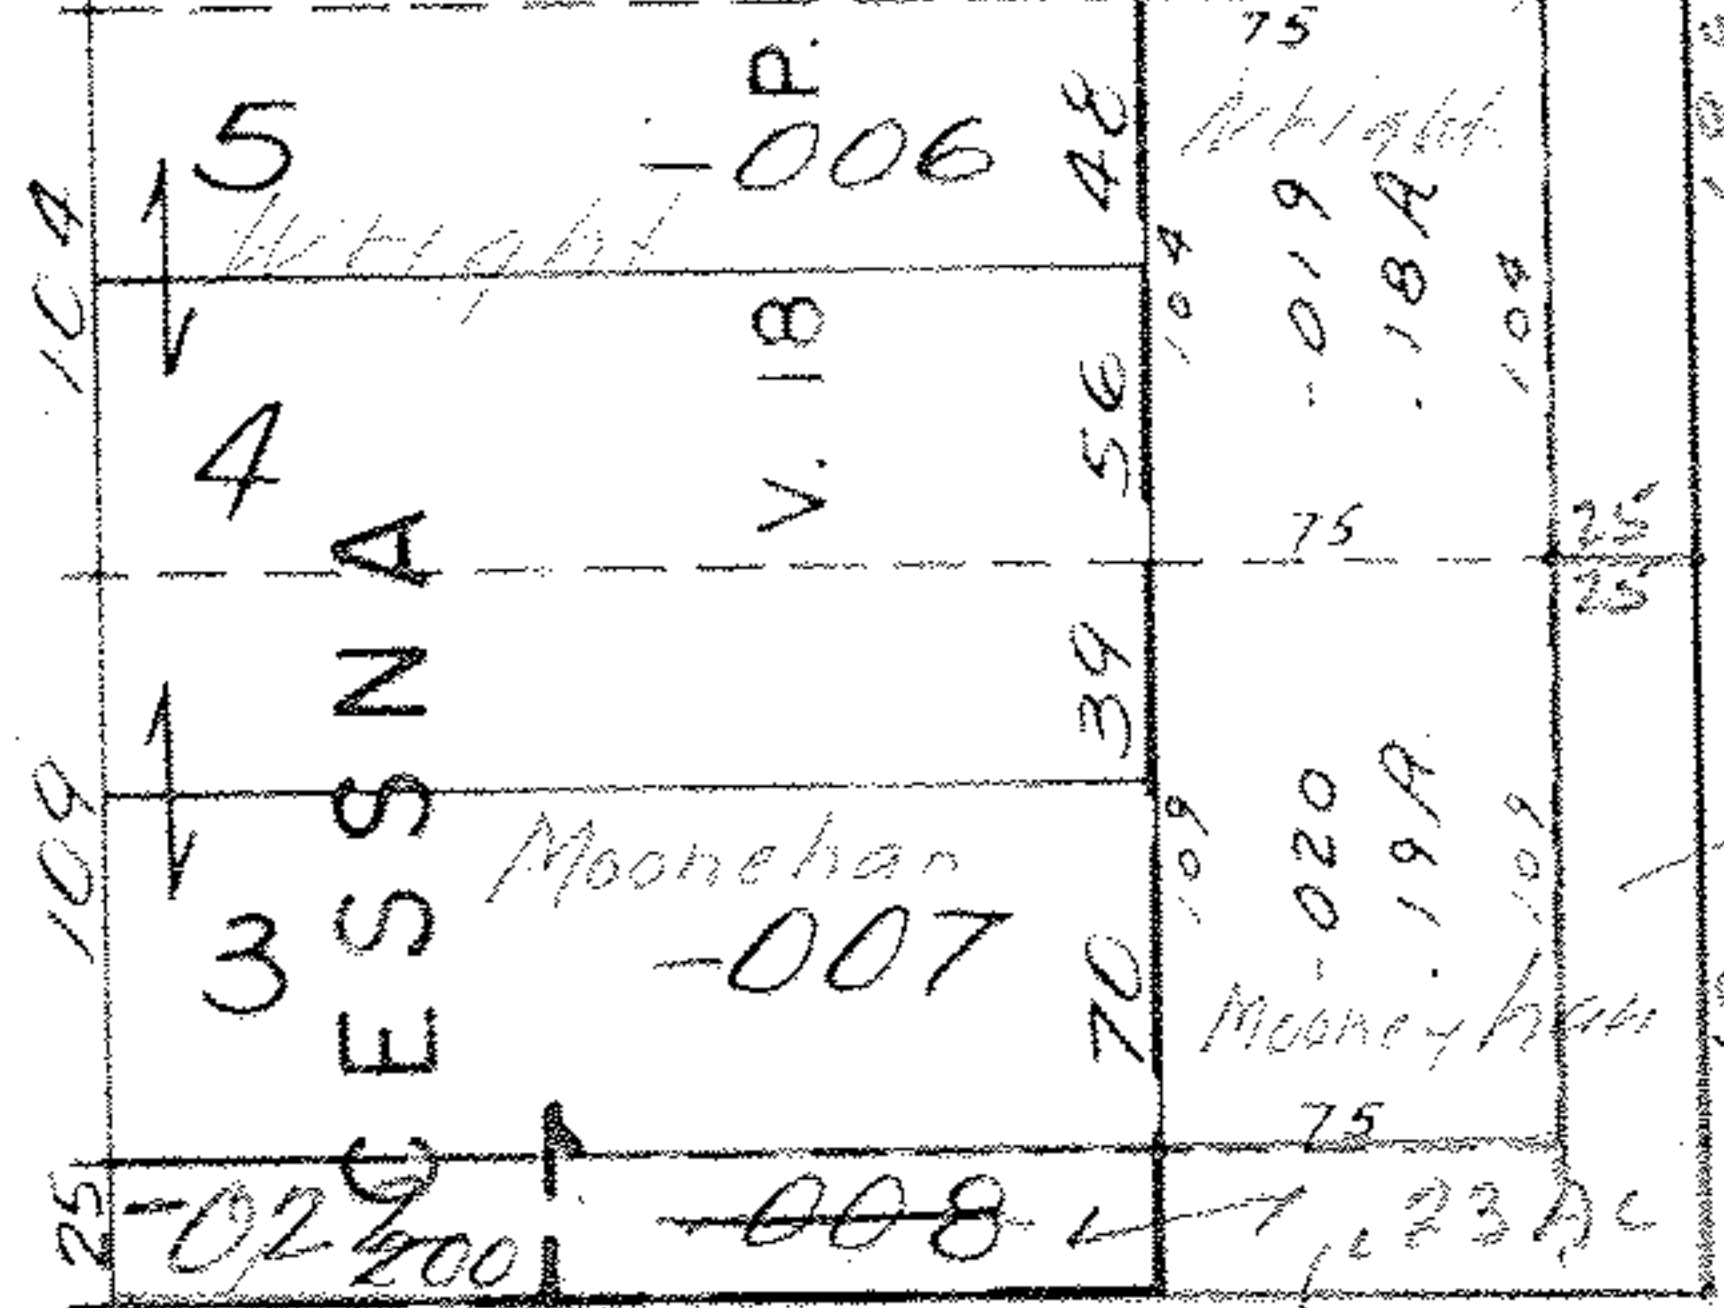 75
5
P.
-006
48
Wright
Wright
104
-019
.18A
104
104
V. 18
4
56
75
25
25
CESSNA
39
109
3
Moonehan
-007
70
109
-020
.19A
109
Mooneyhan
75
25
200
-008
.23 AC